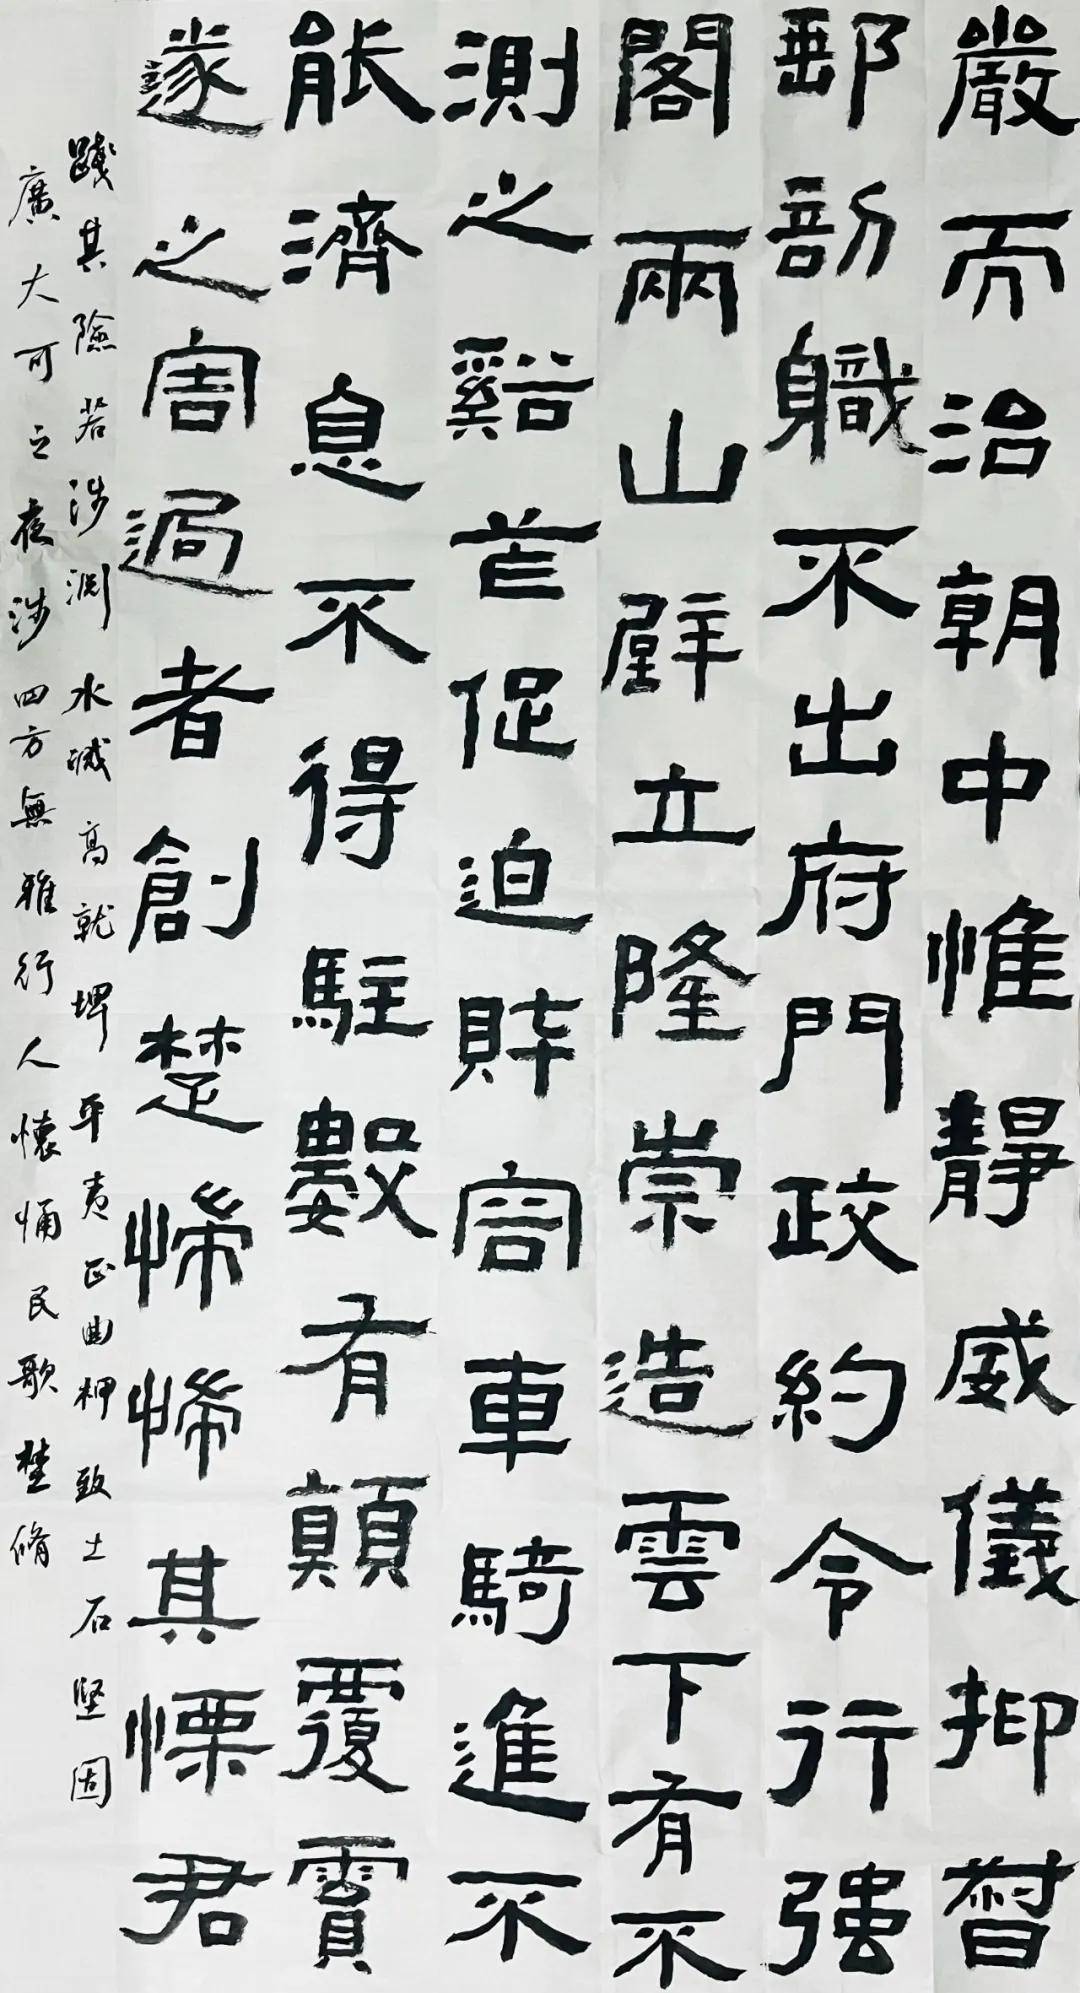 嚴而治朝中惟靜威儀抑督
郵部職不出府門政約令行强
閣兩山壁立隆崇造雲下有不
測之谿芒促迫財容車騎進不
能濟息不得駐數有顛覆霣
遂之害過者創楚惴惴其慄君
踐其險若涉淵水減高就埤平夷正曲柙致土石堅固
廣大可之夜涉四方無雍行人懽悀民歌楚脩